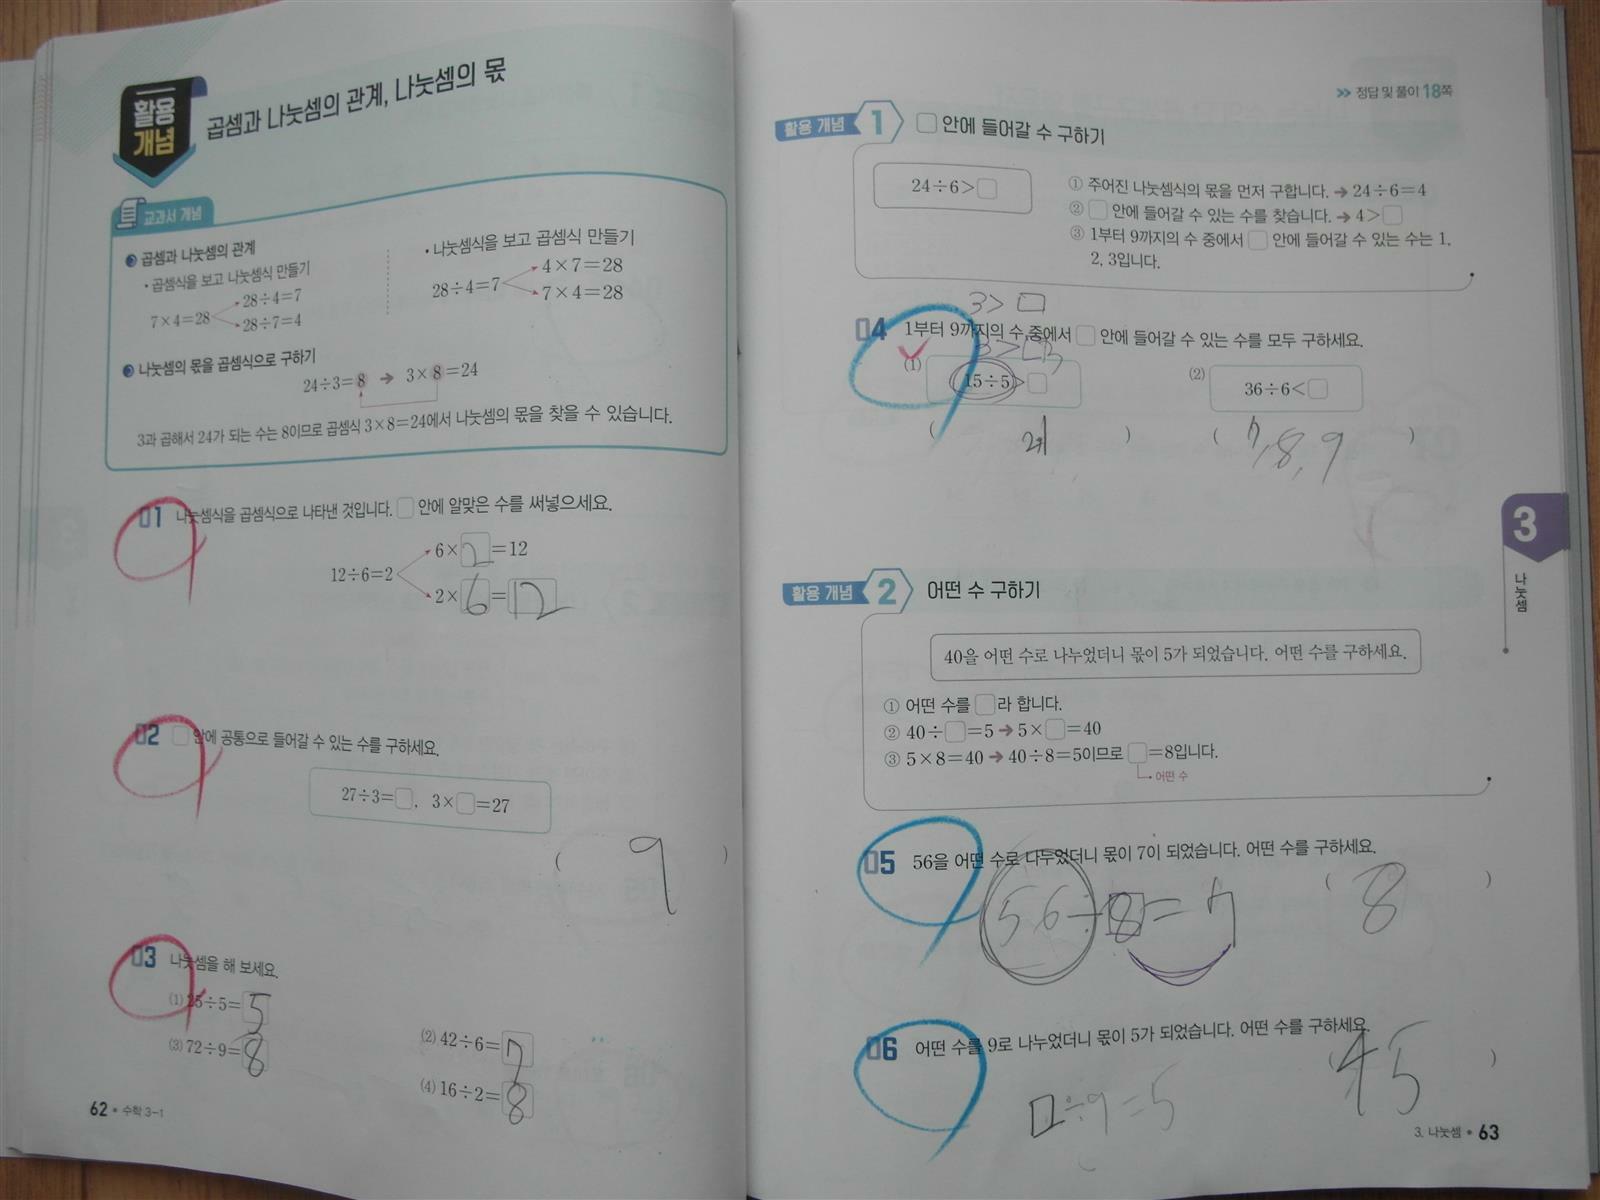 활용
개념
곱셈과 나눗셈의 관계, 나눗셈의 몫
교과서 개념
곱셈과 나눗셈의 관계
• 곱셈식을 보고 나눗셈식 만들기
7×4=28
28÷4=7
28÷7=4
• 나눗셈식을 보고 곱셈식 만들기
28÷4=7
4×7=28
7×4=28
나눗셈의 몫을 곱셈식으로 구하기
24÷3=8 → 3×8=24
3과 곱해서 24가 되는 수는 8이므로 곱셈식 3×8=24에서 나눗셈의 몫을 찾을 수 있습니다.
01 나눗셈식을 곱셈식으로 나타낸 것입니다. □ 안에 알맞은 수를 써넣으세요.
12÷6=2
6×2=12
2×6=12
02 □ 안에 공통으로 들어갈 수 있는 수를 구하세요.
27÷3=□, 3×□=27
( 9 )
03 나눗셈을 해 보세요.
(1) 25÷5=5
(2) 42÷6=7
(3) 72÷9=8
(4) 16÷2=8
62 • 수학 3-1
정답 및 풀이 18쪽
활용 개념 1 □ 안에 들어갈 수 구하기
24÷6>□
① 주어진 나눗셈식의 몫을 먼저 구합니다. → 24÷6=4
② □ 안에 들어갈 수 있는 수를 찾습니다. → 4>□
③ 1부터 9까지의 수 중에서 □ 안에 들어갈 수 있는 수는 1,
2, 3입니다.
3>□
04 1부터 9까지의 수 중에서 □ 안에 들어갈 수 있는 수를 모두 구하세요.
3>□
(1) 15÷5>□
(2) 36÷6<□
( 7,8,9 )
활용 개념 2 어떤 수 구하기
40을 어떤 수로 나누었더니 몫이 5가 되었습니다. 어떤 수를 구하세요.
① 어떤 수를 □라 합니다.
② 40÷□=5 → 5×□=40
③ 5×8=40 → 40÷8=5이므로 □=8입니다.
어떤 수
05 56을 어떤 수로 나누었더니 몫이 7이 되었습니다. 어떤 수를 구하세요.
56÷8=7
( 8 )
06 어떤 수를 9로 나누었더니 몫이 5가 되었습니다. 어떤 수를 구하세요.
□÷9=5
( 45 )
3
나눗셈
3. 나눗셈 • 63